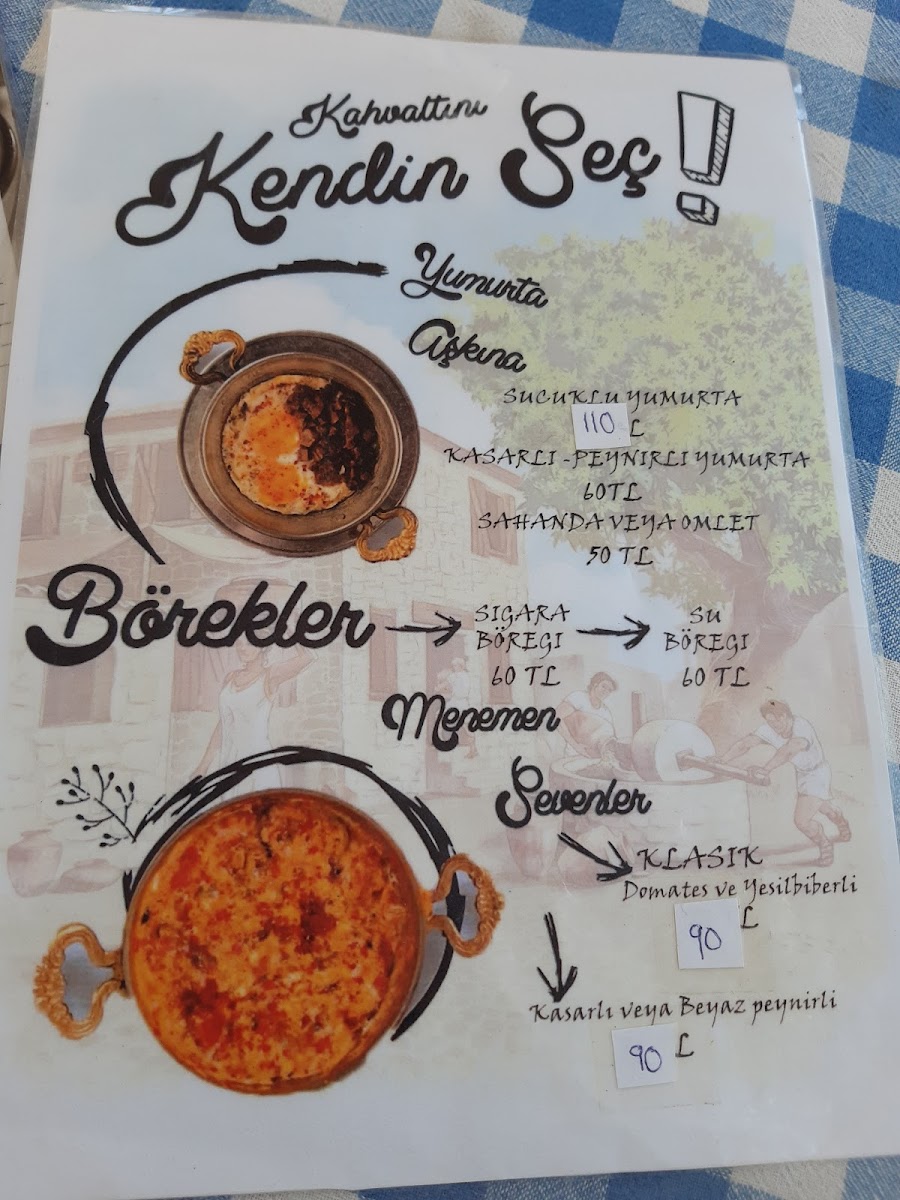 Kahvaltını
Kendin Seç!
Yumurta
Aşkına
SUCUKLU YUMURTA
110 L
KASARLI-PEYNIRLI YUMURTA
60TL
SAHANDA VEYA OMLET
50 TL
Börekler
SIGARA
BÖREGI
60 TL
SU
BÖREGI
60 TL
Menemen
Sevenler
KLASIK
Domates ve Yesilbiberli
90 L
Kasarlı veya Beyaz peynirli
90 L